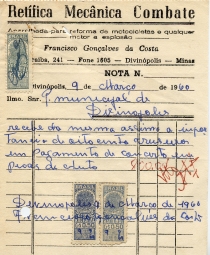 Retífica Mecânica Combate
Aparelhada para reforma de motocicletas e qualquer
motor a explosão
Francisco Gonçalves da Costa
241 - Fone 1605 - Divinópolis - Minas
NOTA N.
Divinópolis, 9 de Março de 1960
Ilmo. Snr. P. municipal de
Divinópolis
recebi do mesmo assima a impor
tancia de oito cento cruzeiros
em pagamento de concerto e
peças de
Divinopolis 9 de Março de 1960
Francisco Gonçalves da Costa